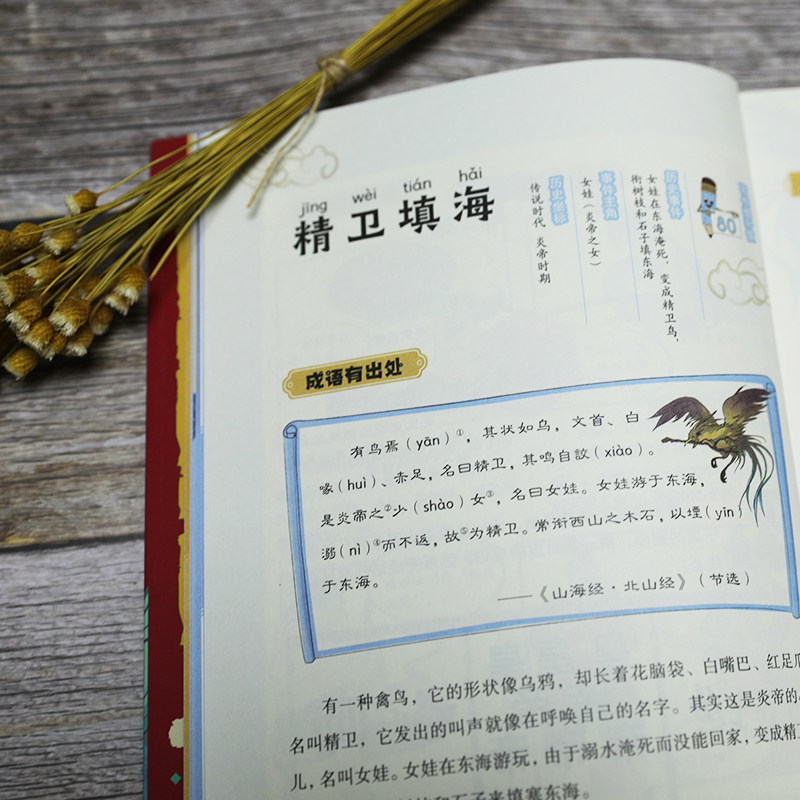 jīng wèi tián hǎi
精卫填海
80
历史事件
女娃在东海淹死，变成精卫鸟，
衔树枝和石子填东海
事件主角
女娃（炎帝之女）
传说时代 炎帝时期
成语有出处
有鸟焉（yān）①，其状如乌，文首、白
喙（huì）、赤足，名曰精卫，其鸣自詨（xiào）。
是炎帝之②少（shào）女③，名曰女娃。女娃游于东海，
溺（nì）④而不返，故⑤为精卫。常衔西山之木石，以堙（yīn）
于东海。
——《山海经·北山经》（节选）
有一种禽鸟，它的形状像乌鸦，却长着花脑袋、白嘴巴、红足爪
名叫精卫，它发出的叫声就像在呼唤自己的名字。其实这是炎帝的
儿，名叫女娃。女娃在东海游玩，由于溺水淹死而没能回家，变成精卫
和石子来填塞东海。